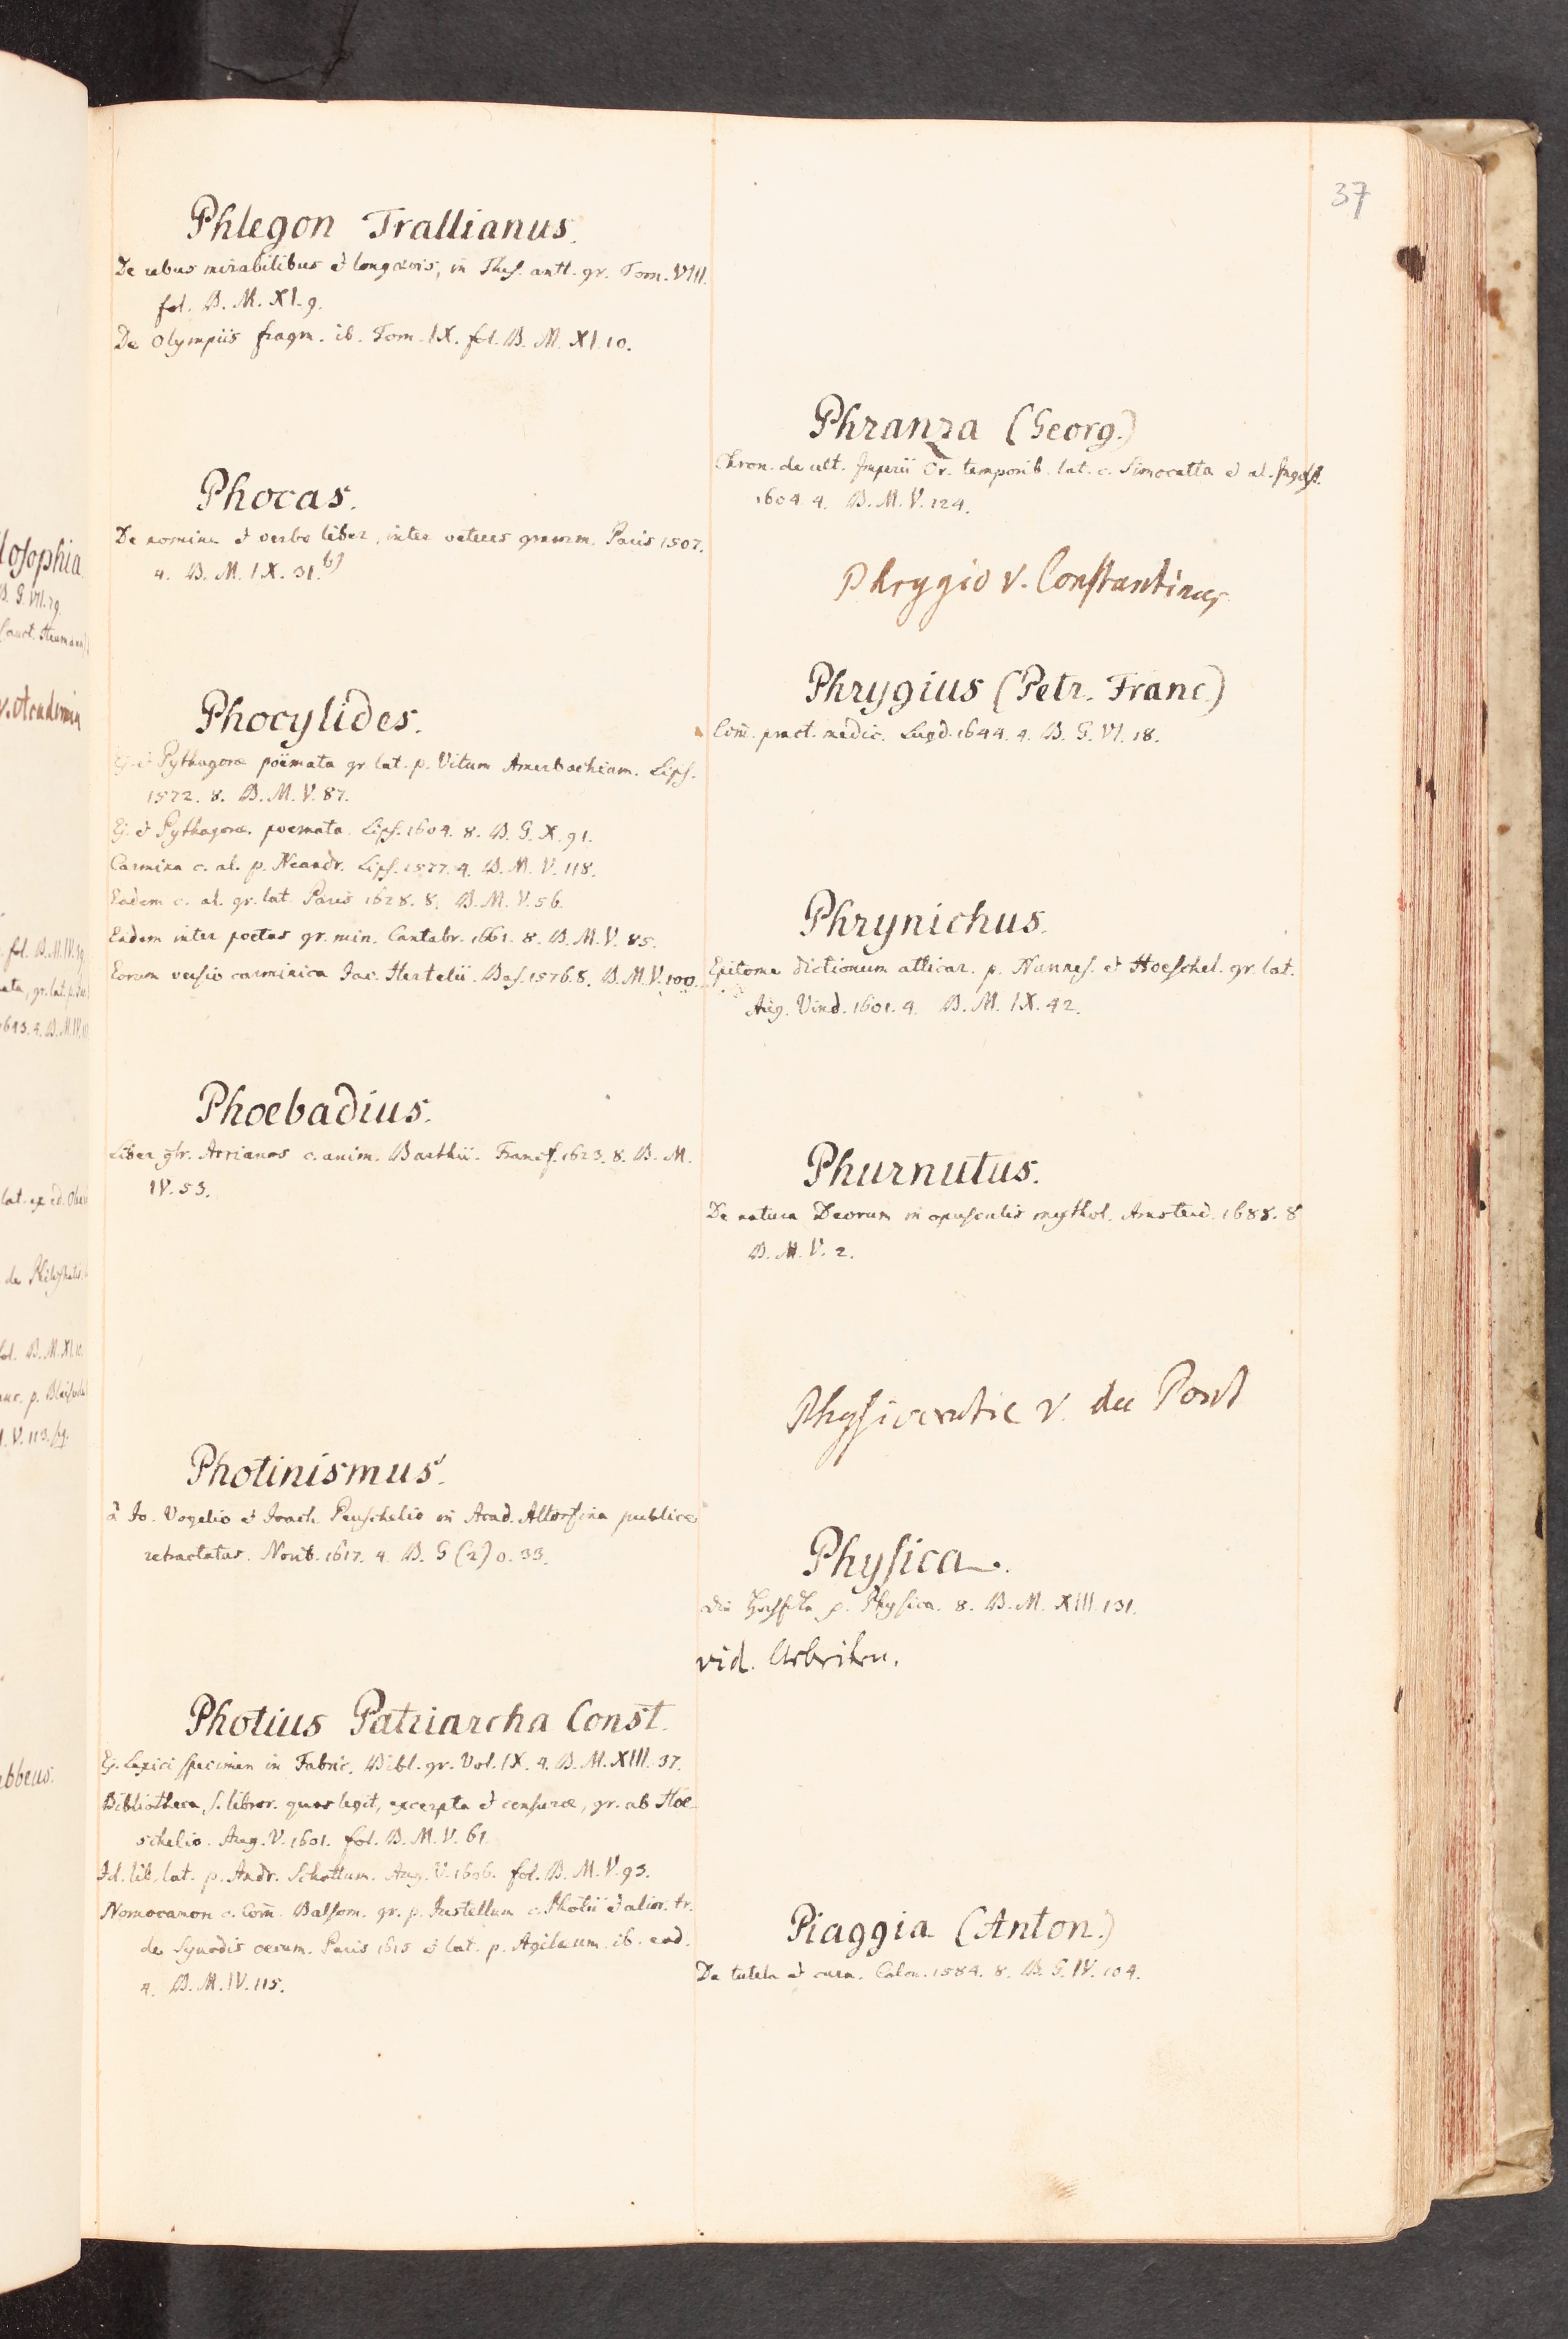 37
Phlegon Trallianus.
De rebus mirabilibus et longævis, in Thes. antt. gr. Tom. VIII.
fol. B. M. XI. 9.
De Olympiis fragm. ib. Tom. IX. fol. B. M. XI. 10.
Phocas.
De nomine et verbo liber, inter veteres gramm. Paris 1507.
4. B. M. IX. 31. b)
Phocylides.
Ej. et Pythagoræ poëmata gr. lat. p. Vitum Amerbachium. Lips.
1572. 8. B. M. V. 87.
Ej. et Pythagoræ. poemata. Lips. 1604. 8. B. G. X. 91.
Carmina c. al. p. Neandr. Lips. 1577. 4. B. M. V. 118.
Eadem c. al. gr. lat. Paris 1628. 8. B. M. V. 56.
Eadem inter poetas gr. min. Cantabr. 1661. 8. B. M. V. 85.
Eorum versio carminica Jac. Hertelii. Bas. 1576. 8. B. M. V. 100.
Phoebadius.
Liber ctr. Arrianos c. anim. Barthii. Francf. 1623. 8. B. M.
IV. 53.
Photinismus.
à Jo. Vogelio et Joach. Peuschelio in Acad. Altorfina publice
retractatus. Norib. 1617. 4. B. G (2) 0. 33.
Photius Patriarcha Const.
Ej. Lexici specimen in Fabric. Bibl. gr. Vol. IX. 4. B. M. XIII. 37.
Bibliotheca, s. libror. quos legit, excerpta et censuræ, gr. ab Hoe-
schelio. Aug. V. 1601. fol. B. M. V. 61.
Id. lib. lat. p. Andr. Schottum. Aug. V. 1606. fol. B. M. V. 93.
Nomocanon c. Com̄. Balsom. gr. p. Justellum c. Photii et alior. tr.
de Synodis oecum. Paris 1615 et lat. p. Agilæum. ib. eod.
4. B. M. IV. 115.
Phranza (Georg.)
Chron. de ult. Imperii Or. temporib. lat. c. Simocatta et al. Ingolst.
1604. 4. B. M. V. 124.
Phrygio v. Constantinus
Phrygius (Petr. Franc.)
Com̄. pract. medic. Lugd. 1644. 4. B. G. VI. 18.
Phrynichus.
Epitome dictionum atticar. p. Nunnes. et Hoeschel. gr. lat.
Aug. Vind. 1601. 4. B. M. IX. 42.
Phurnutus.
De natura Deorum in opusculis mythol. Amsterd. 1688. 8
B. M. V. 2.
Physiocratie v. du Pont
Physica.
p. Physica. 8. B. M. XIII. 131.
vid.
Piaggia (Anton.)
De tutela et cura. Colon. 1584. 8. B. G. IV. 104.